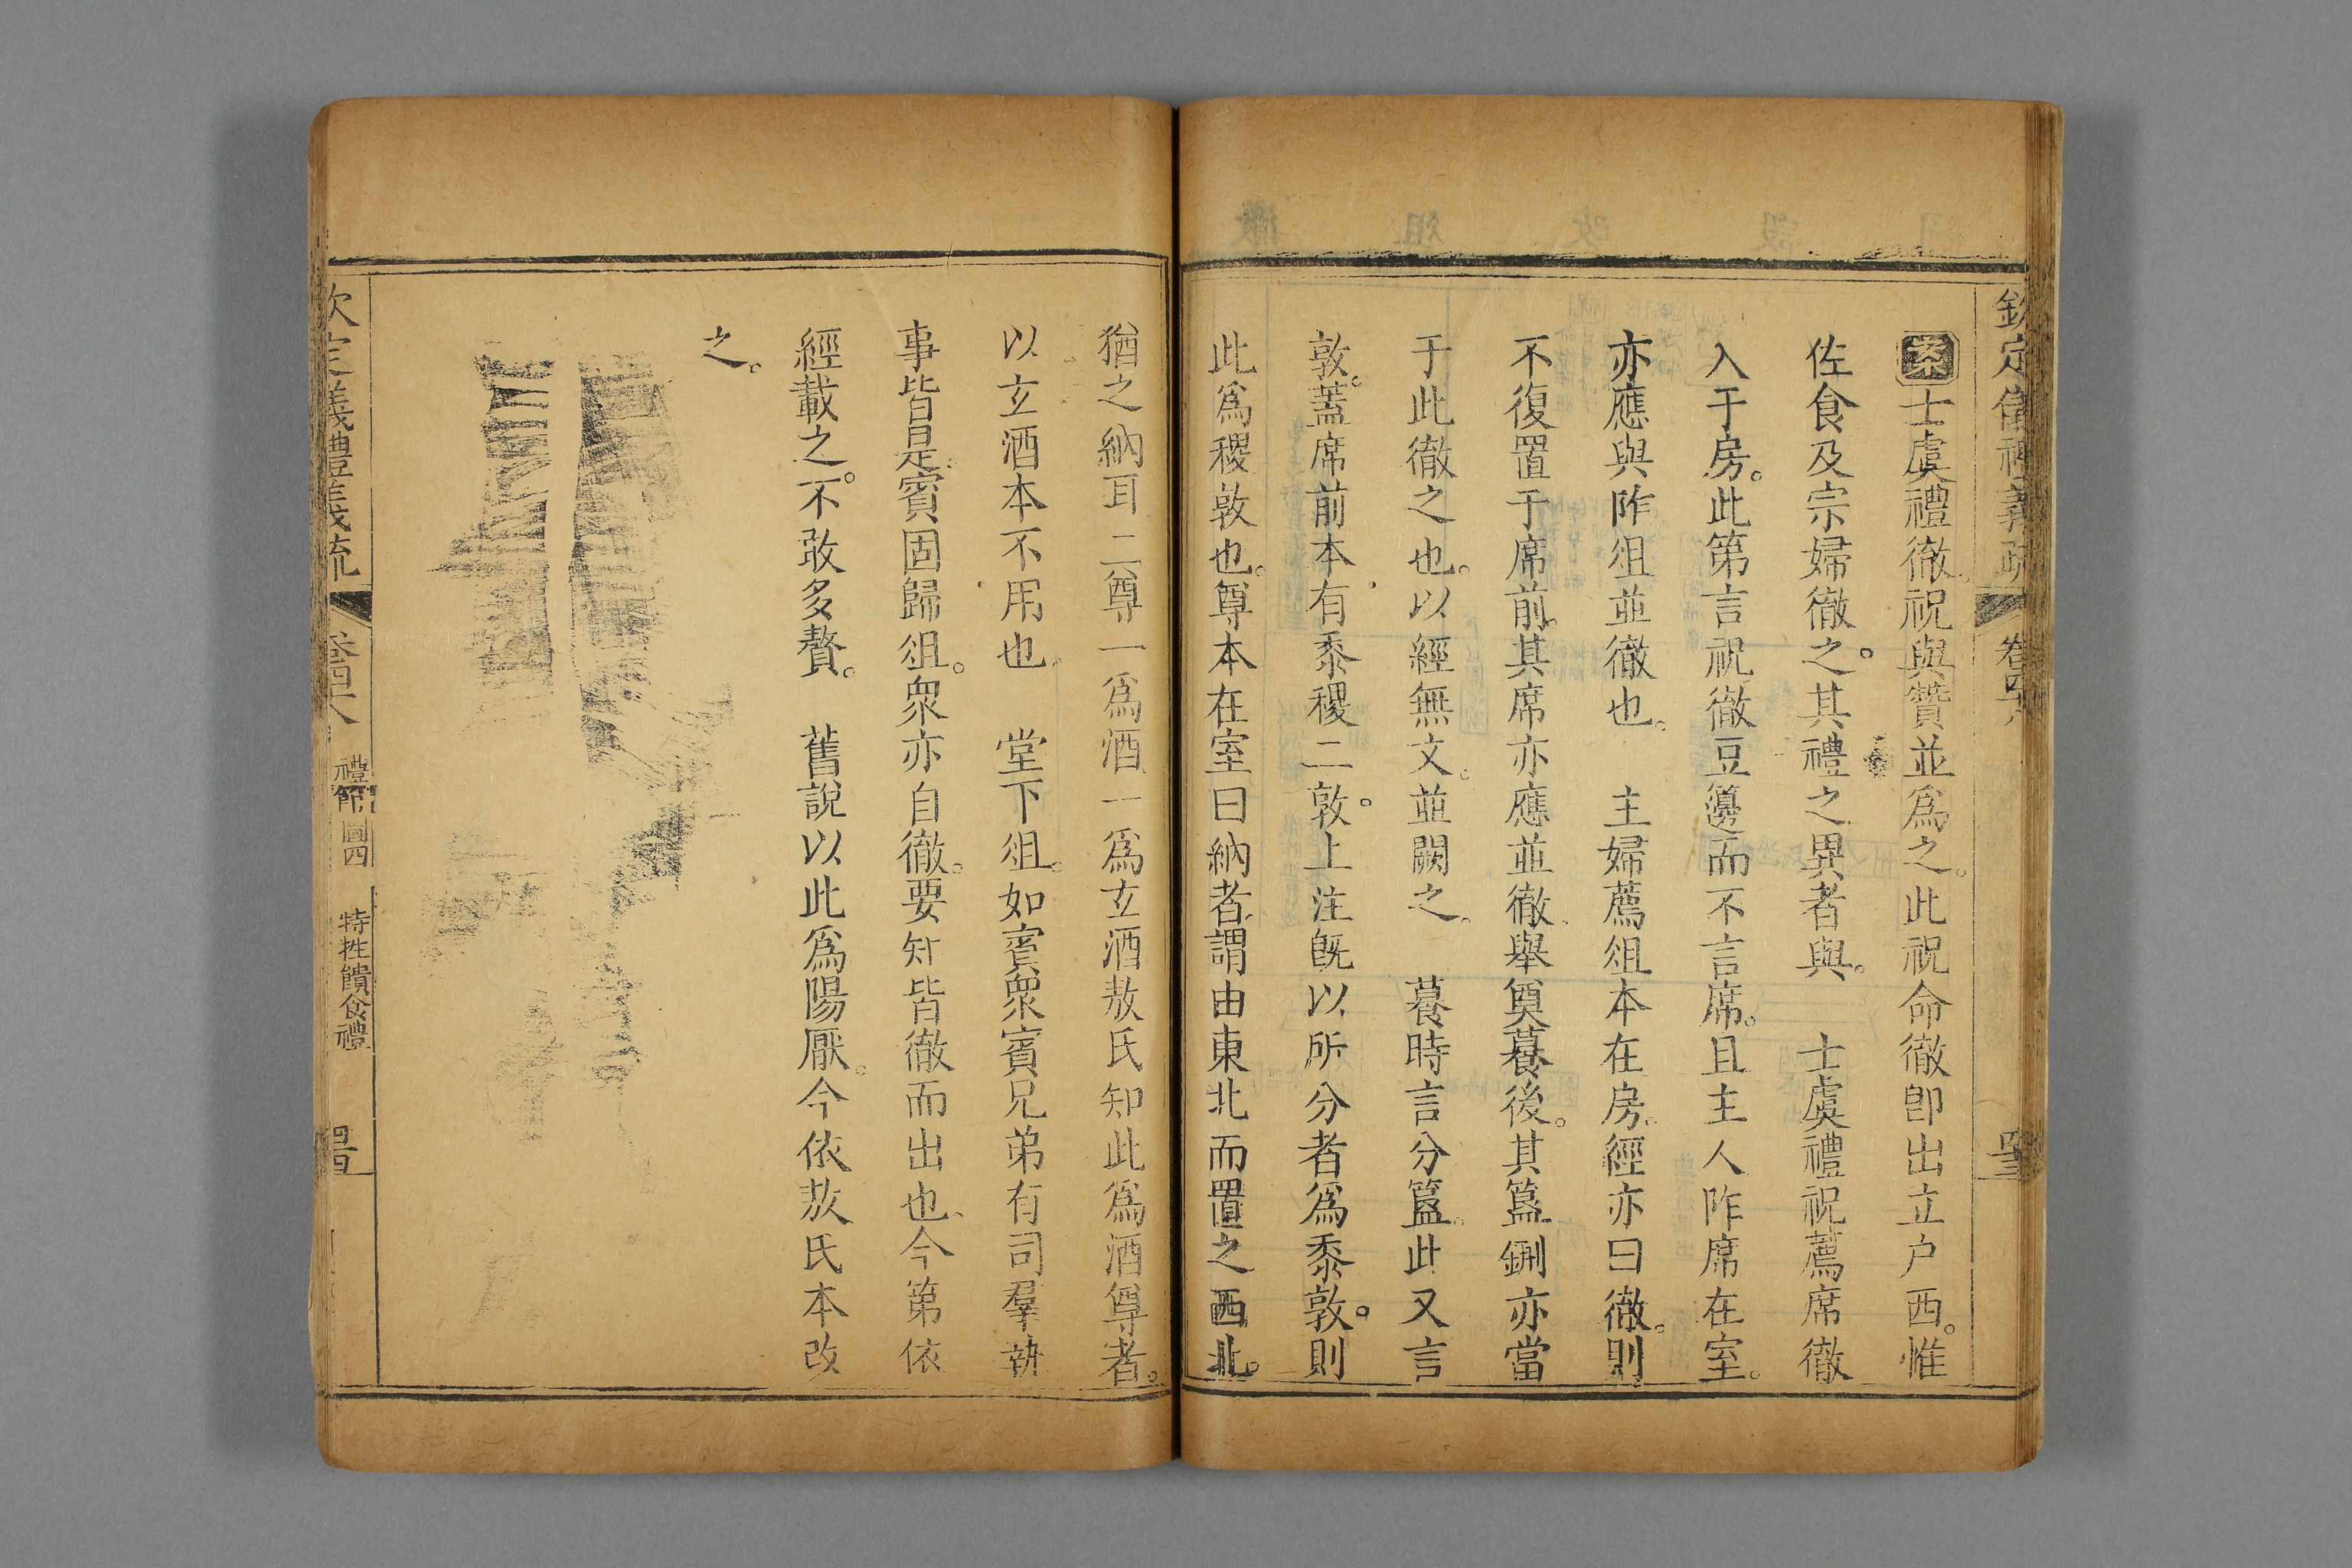 欽定儀禮義疏 卷四十八
案士虞禮徹。祝與贊並爲之。此祝命徹卽出立户西。惟
佐食及宗婦徹之。其禮之異者與。 士虞禮祝薦席徹
入于房。此第言祝徹豆籩而不言席。且主人阼席在室。
亦應與阼俎並徹也。 主婦薦俎本在房。經亦曰徹。則
不復置于席前。其席亦應並徹。舉奠養後。其簋鉶亦當
于此徹之也。以經無文。並闕之。 養時言分簋。此又言
敦。蓋席前本有黍稷二敦。上注旣以所分者爲黍敦。則
此爲稷敦也。尊本在室曰納者。謂由東北而置之西北。
猶之納耳二尊一爲酒一爲玄酒敖氏知此爲酒尊者。
以玄酒本不用也 堂下俎。如賓衆賓兄弟有司羣執
事皆是。賓固歸俎。衆亦自徹。要知皆徹而出也。今第依
經載之。不敢多贅。 舊說以此爲陽厭。今依敖氏本改
之。
欽定儀禮義疏 卷四十八 禮節圖四 特牲饋食禮